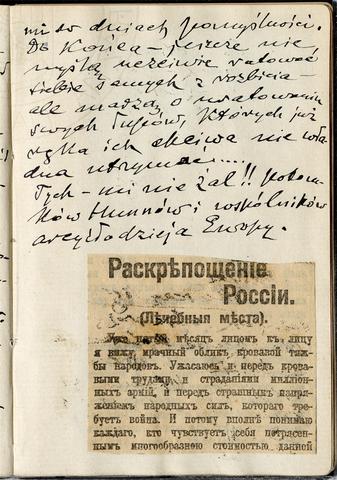 mi so dniach pomyślności.
Do Końca – jeszcze nie
myślą uczciwie ratować
siebie samych z rozbicia –
ale marzą o uratowaniu
swych łupów, których już
ręka ich chciwa nie
dna utrzymać.....
Tych – mi nie żal!! potom-
ków Hunnów i wspólników
arcyzłodzieja Europy.
Раскрѣпощеніе
Россіи.
(Лѣчебныя мѣста).
Уже пятый мѣсяцъ лицомъ къ лицу
я вижу мрачный обликъ кровавой тяж-
бы народовъ. Ужасаюсь и передъ крова-
выми трудами и страданіями милліон-
ныхъ армій, и передъ страшнымъ напря-
женіемъ народныхъ силъ, котораго тре-
буетъ война. И потому вполнѣ понимаю
каждаго, кто чувствуетъ себя потрясен-
нымъ многообразною стоимостью данной